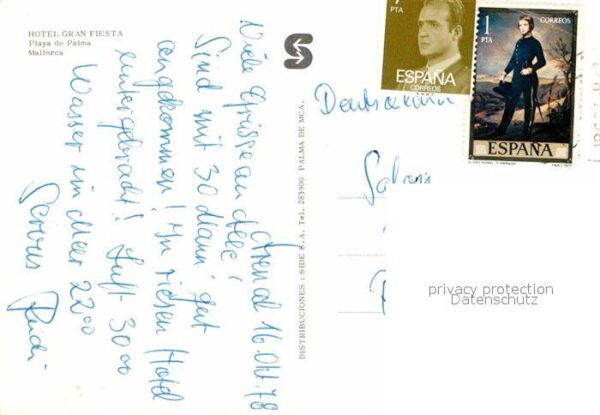 HOTEL GRAN FIESTA
Playa de Palma
Mallorca
Arenal 16. Okt. 78
Viele Grüsse an alle!
Sind mit 30 Mann gut
angekommen! In riesen Hotel
untergebracht! Luft 30°°
Wasser im Meer 22°°
Servus Rudi
DISTRIBUCIONES: SIDE S.A. Tel. 283900 PALMA DE MCA.
S
7
PTA
ESPAÑA
CORREOS
1
PTA
CORREOS
ESPAÑA
privacy protection
Datenschutz